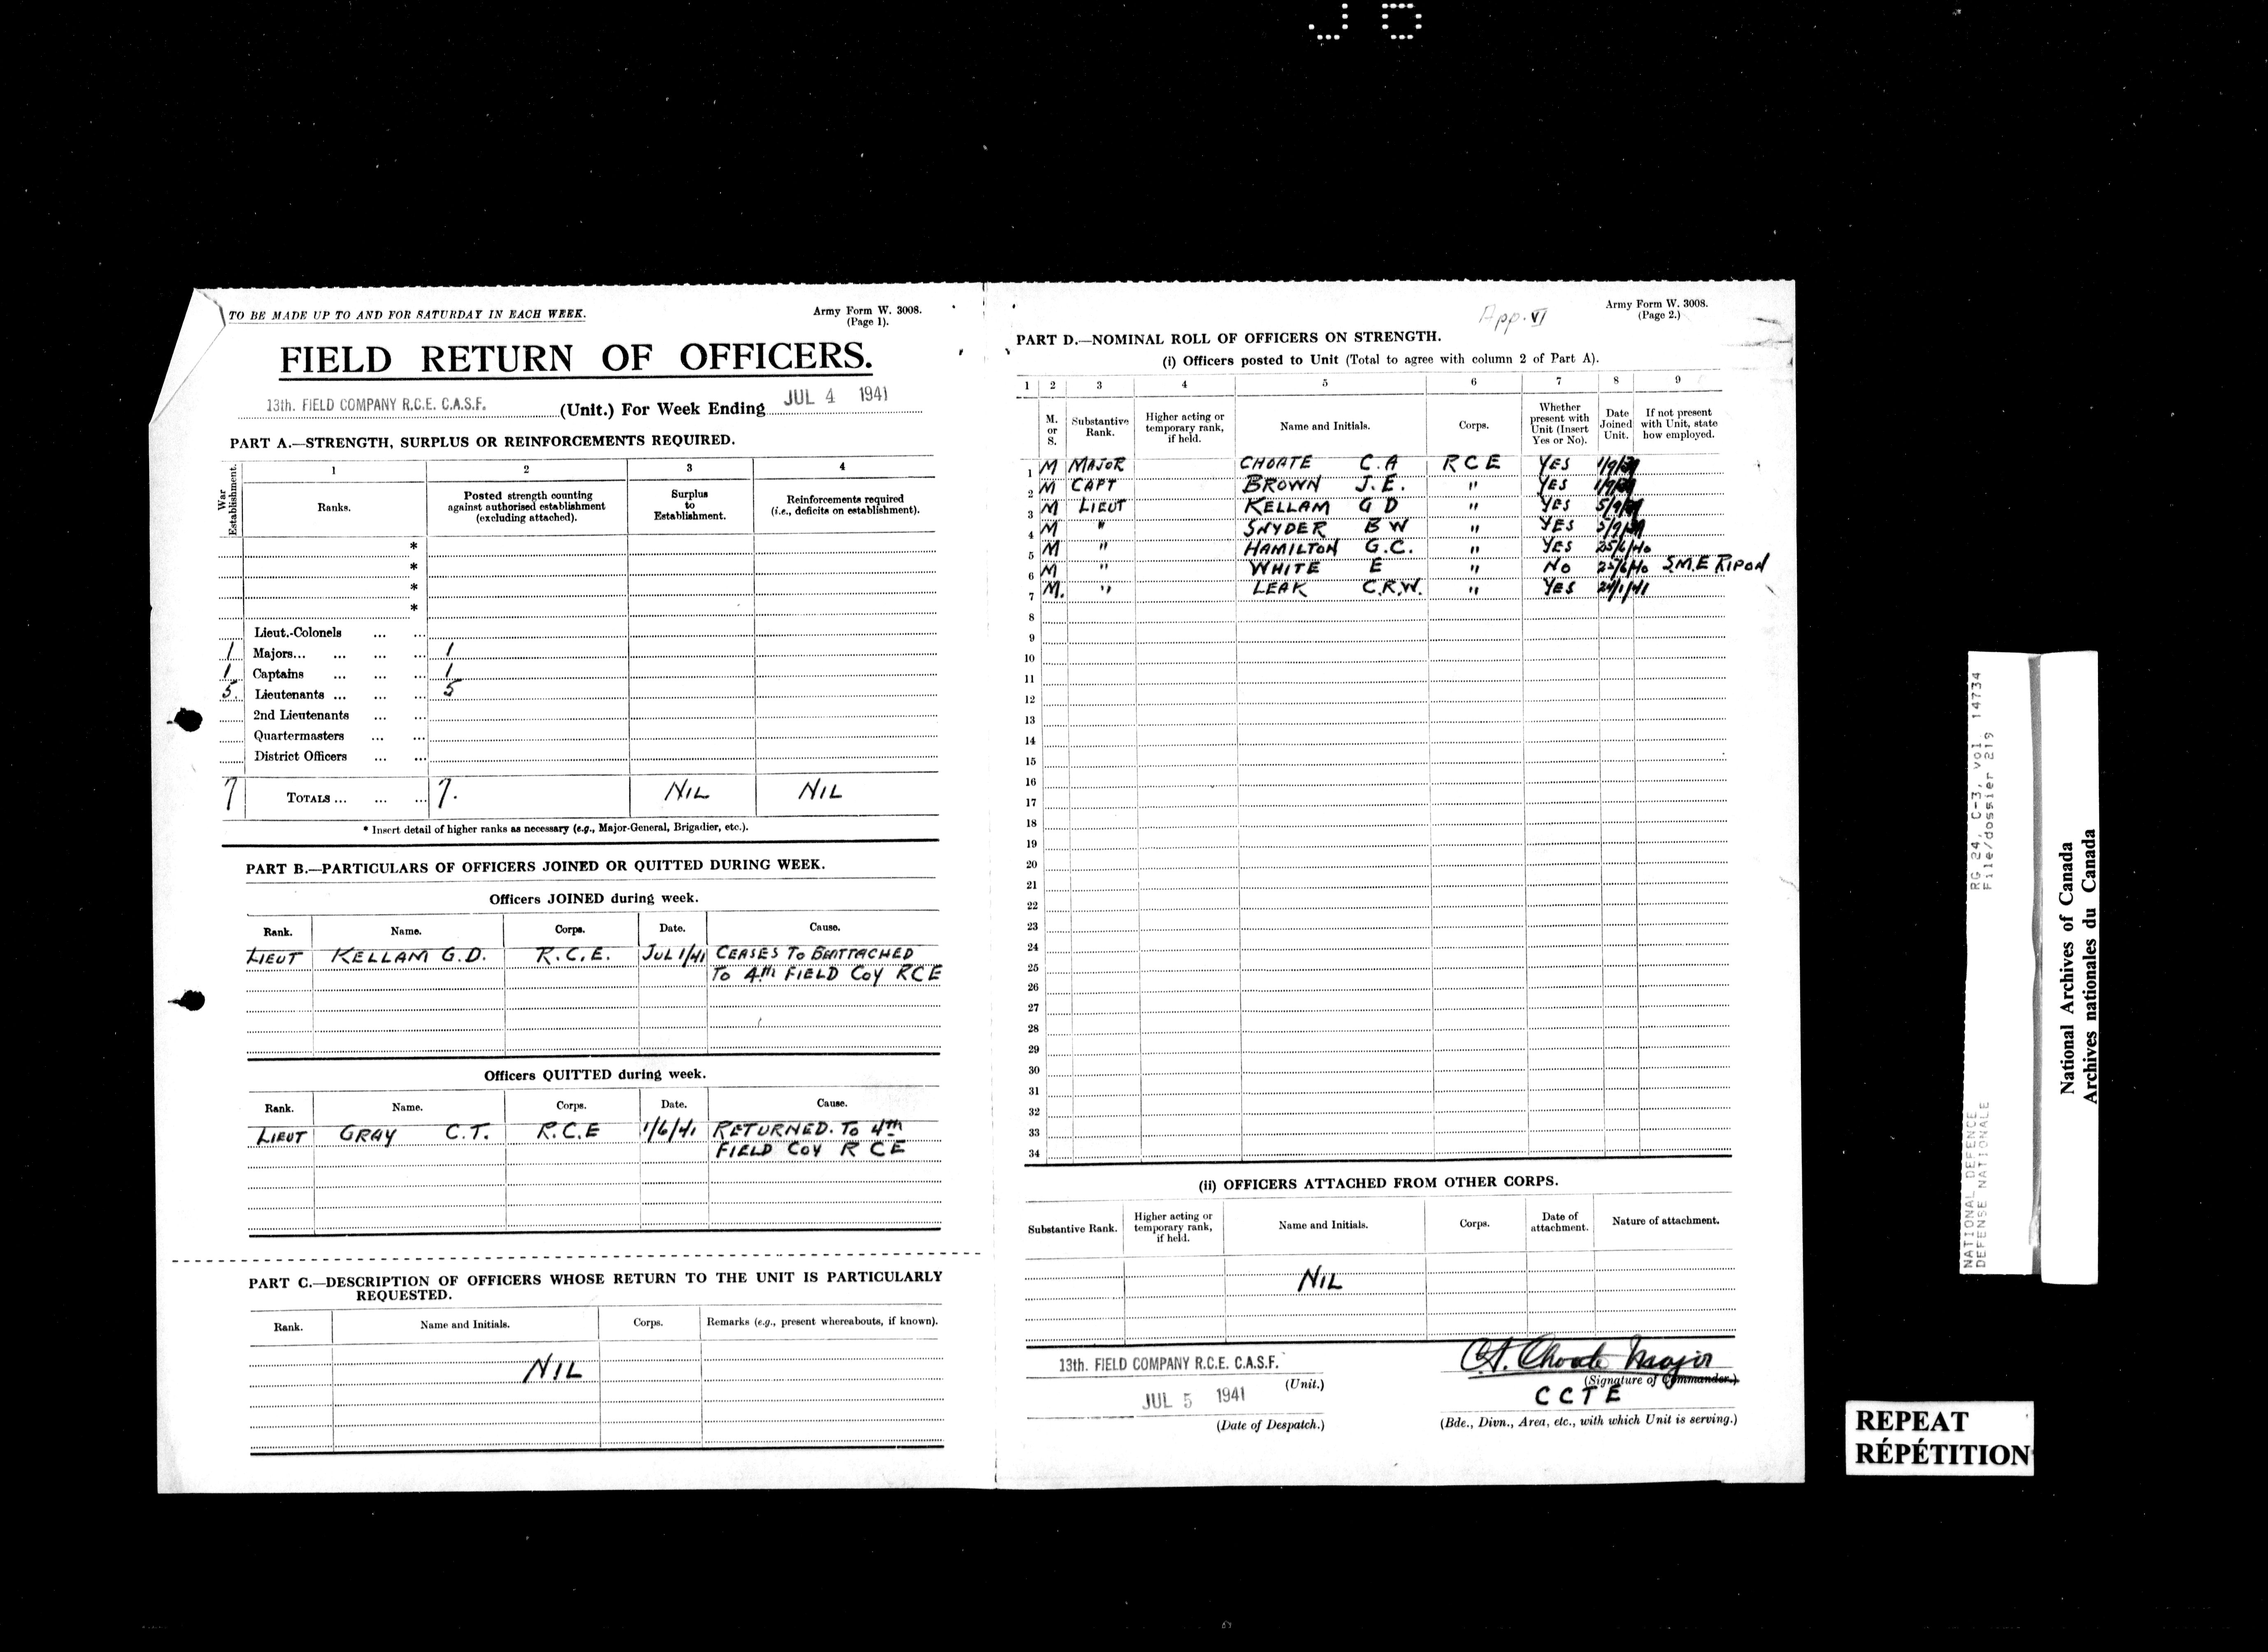 TO BE MADE UP TO AND FOR SATURDAY IN EACH WEEK.
Army Form W. 3008.
(Page 1).
FIELD RETURN OF OFFICERS.
13th. FIELD COMPANY R.C.E. C.A.S.F. (Unit.) For Week Ending JUL 4 1941
PART A.—STRENGTH, SURPLUS OR REINFORCEMENTS REQUIRED.
War Establishment.
1 2 3 4
Ranks.
Posted strength counting against authorised establishment (excluding attached).
Surplus to Establishment.
Reinforcements required (i.e., deficits on establishment).
*
*
*
*
Lieut.-Colonels ... ...
1 Majors... ... ... ... 1
1 Captains ... ... ... 1
5. Lieutenants ... ... ... 5
2nd Lieutenants ... ...
Quartermasters ... ...
District Officers ... ...
7 TOTALS ... ... ... 7. NIL NIL
* Insert detail of higher ranks as necessary (e.g., Major-General, Brigadier, etc.).
PART B.—PARTICULARS OF OFFICERS JOINED OR QUITTED DURING WEEK.
Officers JOINED during week.
Rank. Name. Corps. Date. Cause.
LIEUT KELLAM G.D. R.C.E. JUL 1/41 CEASES TO BEATTACHED
TO 4th FIELD COY RCE
Officers QUITTED during week.
Rank. Name. Corps. Date. Cause.
LIEUT GRAY C.T. R.C.E 1/6/41 RETURNED. TO 4th
FIELD COY R C E
PART C.—DESCRIPTION OF OFFICERS WHOSE RETURN TO THE UNIT IS PARTICULARLY
REQUESTED.
Rank. Name and Initials. Corps. Remarks (e.g., present whereabouts, if known).
NIL
App. VI
Army Form W. 3008.
(Page 2.)
PART D.—NOMINAL ROLL OF OFFICERS ON STRENGTH.
(i) Officers posted to Unit (Total to agree with column 2 of Part A).
1 2 3 4 5 6 7 8 9
M. or S.
Substantive Rank.
Higher acting or temporary rank, if held.
Name and Initials.
Corps.
Whether present with Unit (Insert Yes or No).
Date Joined Unit.
If not present with Unit, state how employed.
1 M MAJOR CHOATE C.A R C E YES 1/9/39
2 M CAPT BROWN J.E. " YES 1/9/39
3 M LIEUT KELLAM G D " YES 5/9/39
4 M " SNYDER B W " YES 5/9/39
5 M " HAMILTON G.C. " YES 25/6/40
6 M " WHITE E " NO 25/6/40 S.M.E RIPON
7 M. " LEAK C.R.W. " YES 24/1/41
8
9
10
11
12
13
14
15
16
17
18
19
20
21
22
23
24
25
26
27
28
29
30
31
32
33
34
(ii) OFFICERS ATTACHED FROM OTHER CORPS.
Substantive Rank.
Higher acting or temporary rank, if held.
Name and Initials.
Corps.
Date of attachment.
Nature of attachment.
NIL
13th. FIELD COMPANY R.C.E. C.A.S.F.
(Unit.)
JUL 5 1941
(Date of Despatch.)
C.A. Choate Major
(Signature of Commander.)
C C T E
(Bde., Divn., Area, etc., with which Unit is serving.)
NATIONAL DEFENCE RG 24, C-3, vol 14734
DEFENSE NATIONALE File/dossier 219
National Archives of Canada
Archives nationales du Canada
REPEAT
RÉPÉTITION